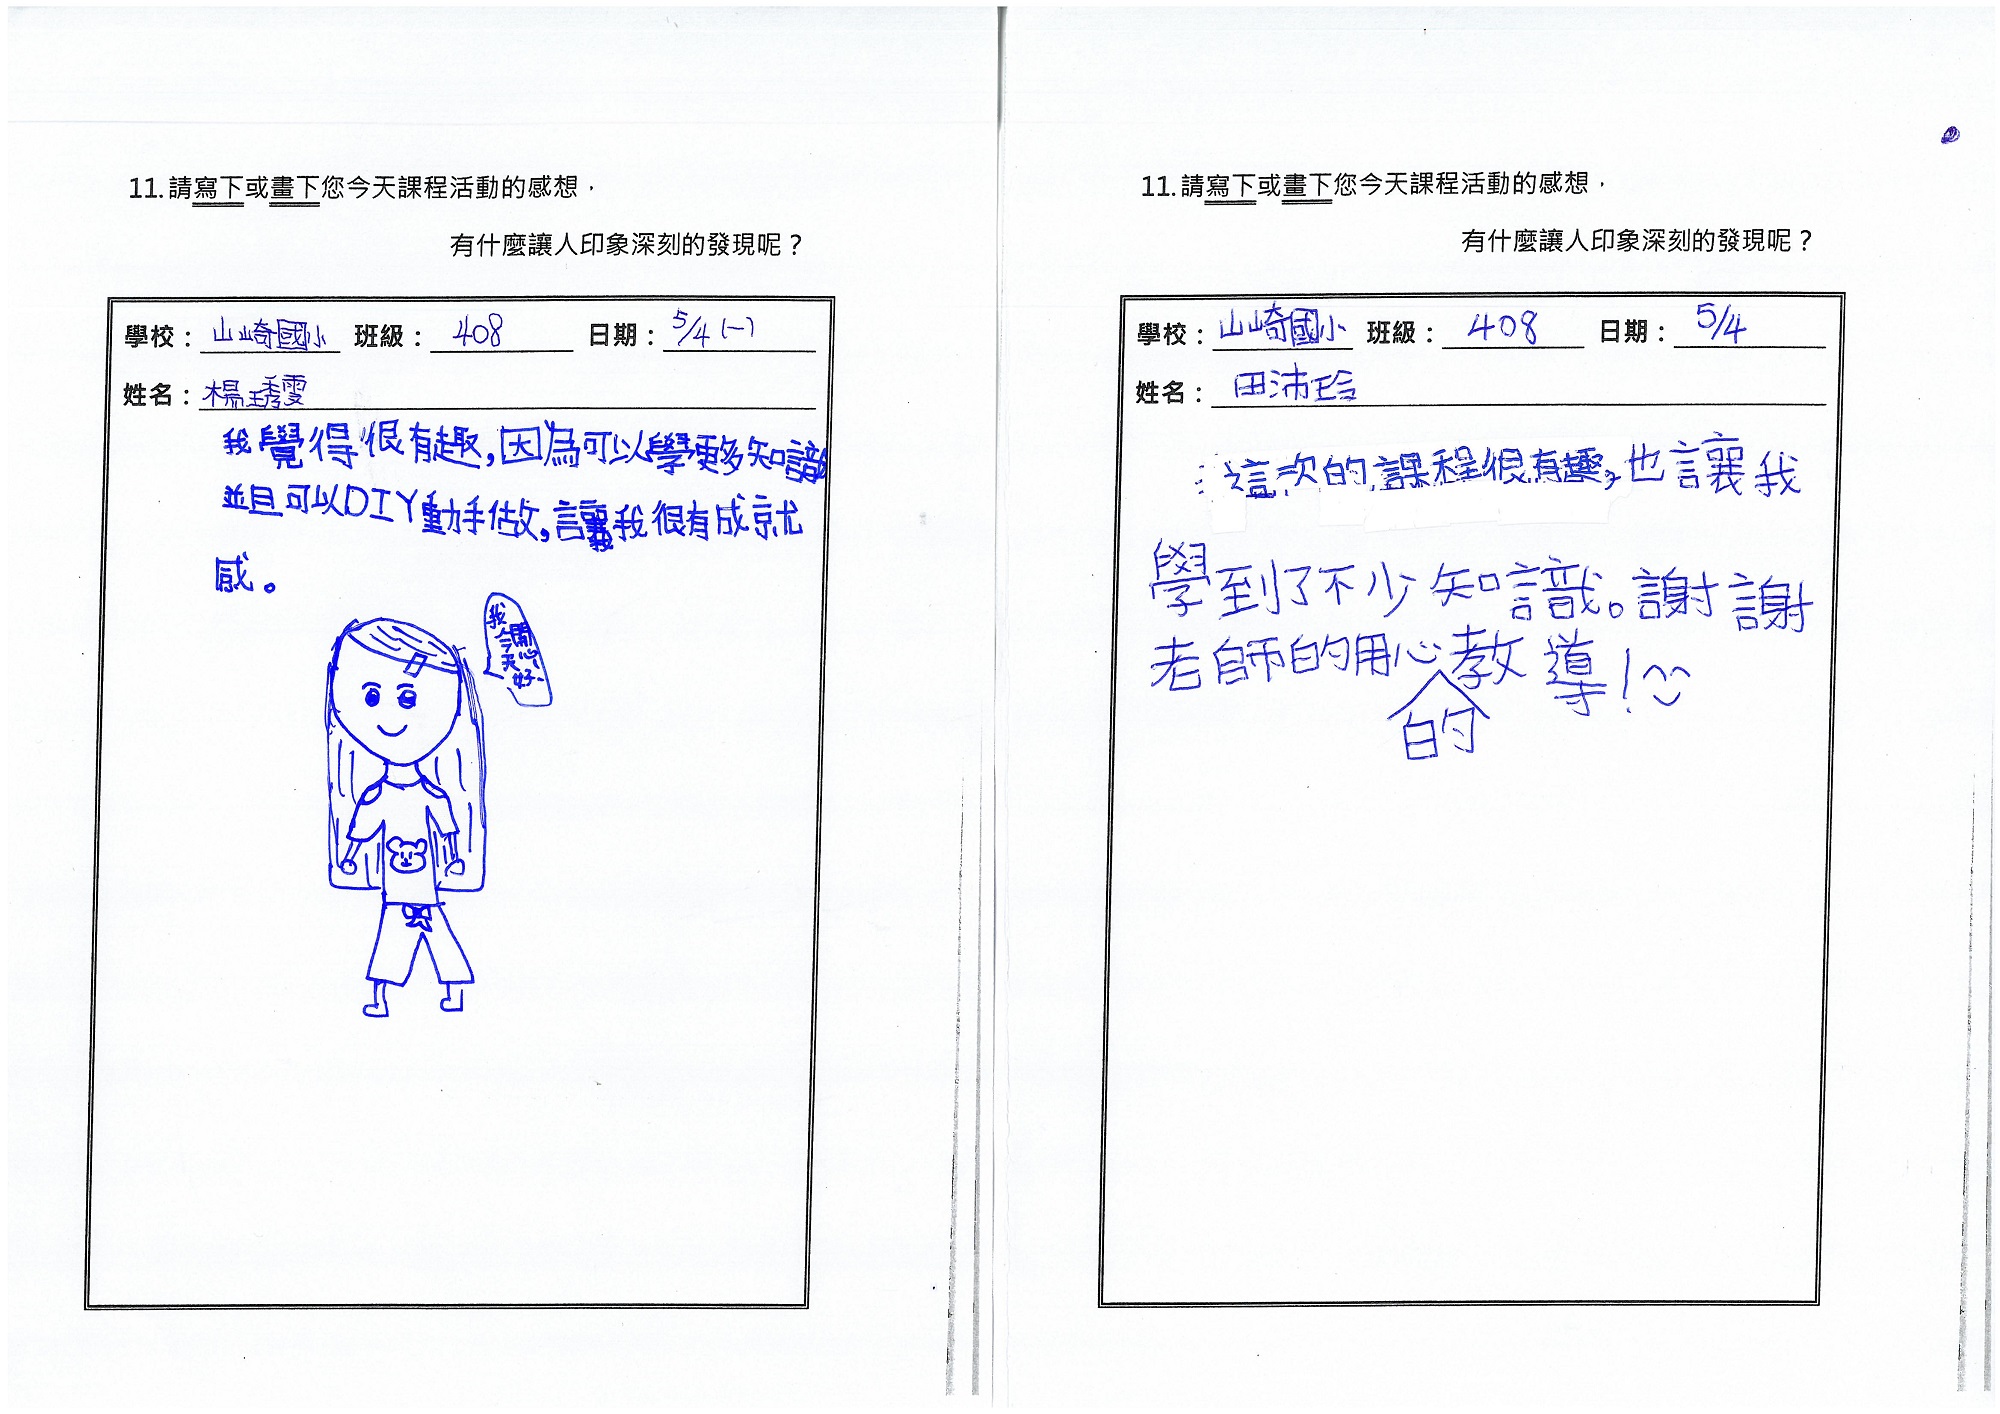 11.請寫下或畫下您今天課程活動的感想，
有什麼讓人印象深刻的發現呢？
學校：山崎國小 班級：408 日期：5/4(一)
姓名：楊琇雯
我覺得很有趣,因為可以學更多知識
並且可以DIY動手做,讓我很有成就
感。
我今天好
開心~
11.請寫下或畫下您今天課程活動的感想，
有什麼讓人印象深刻的發現呢？
學校：山崎國小 班級：408 日期：5/4
姓名：田沛玲
這次的課程很有趣,也讓我
學到了不少知識。謝謝
老師的用心教導!^^
的